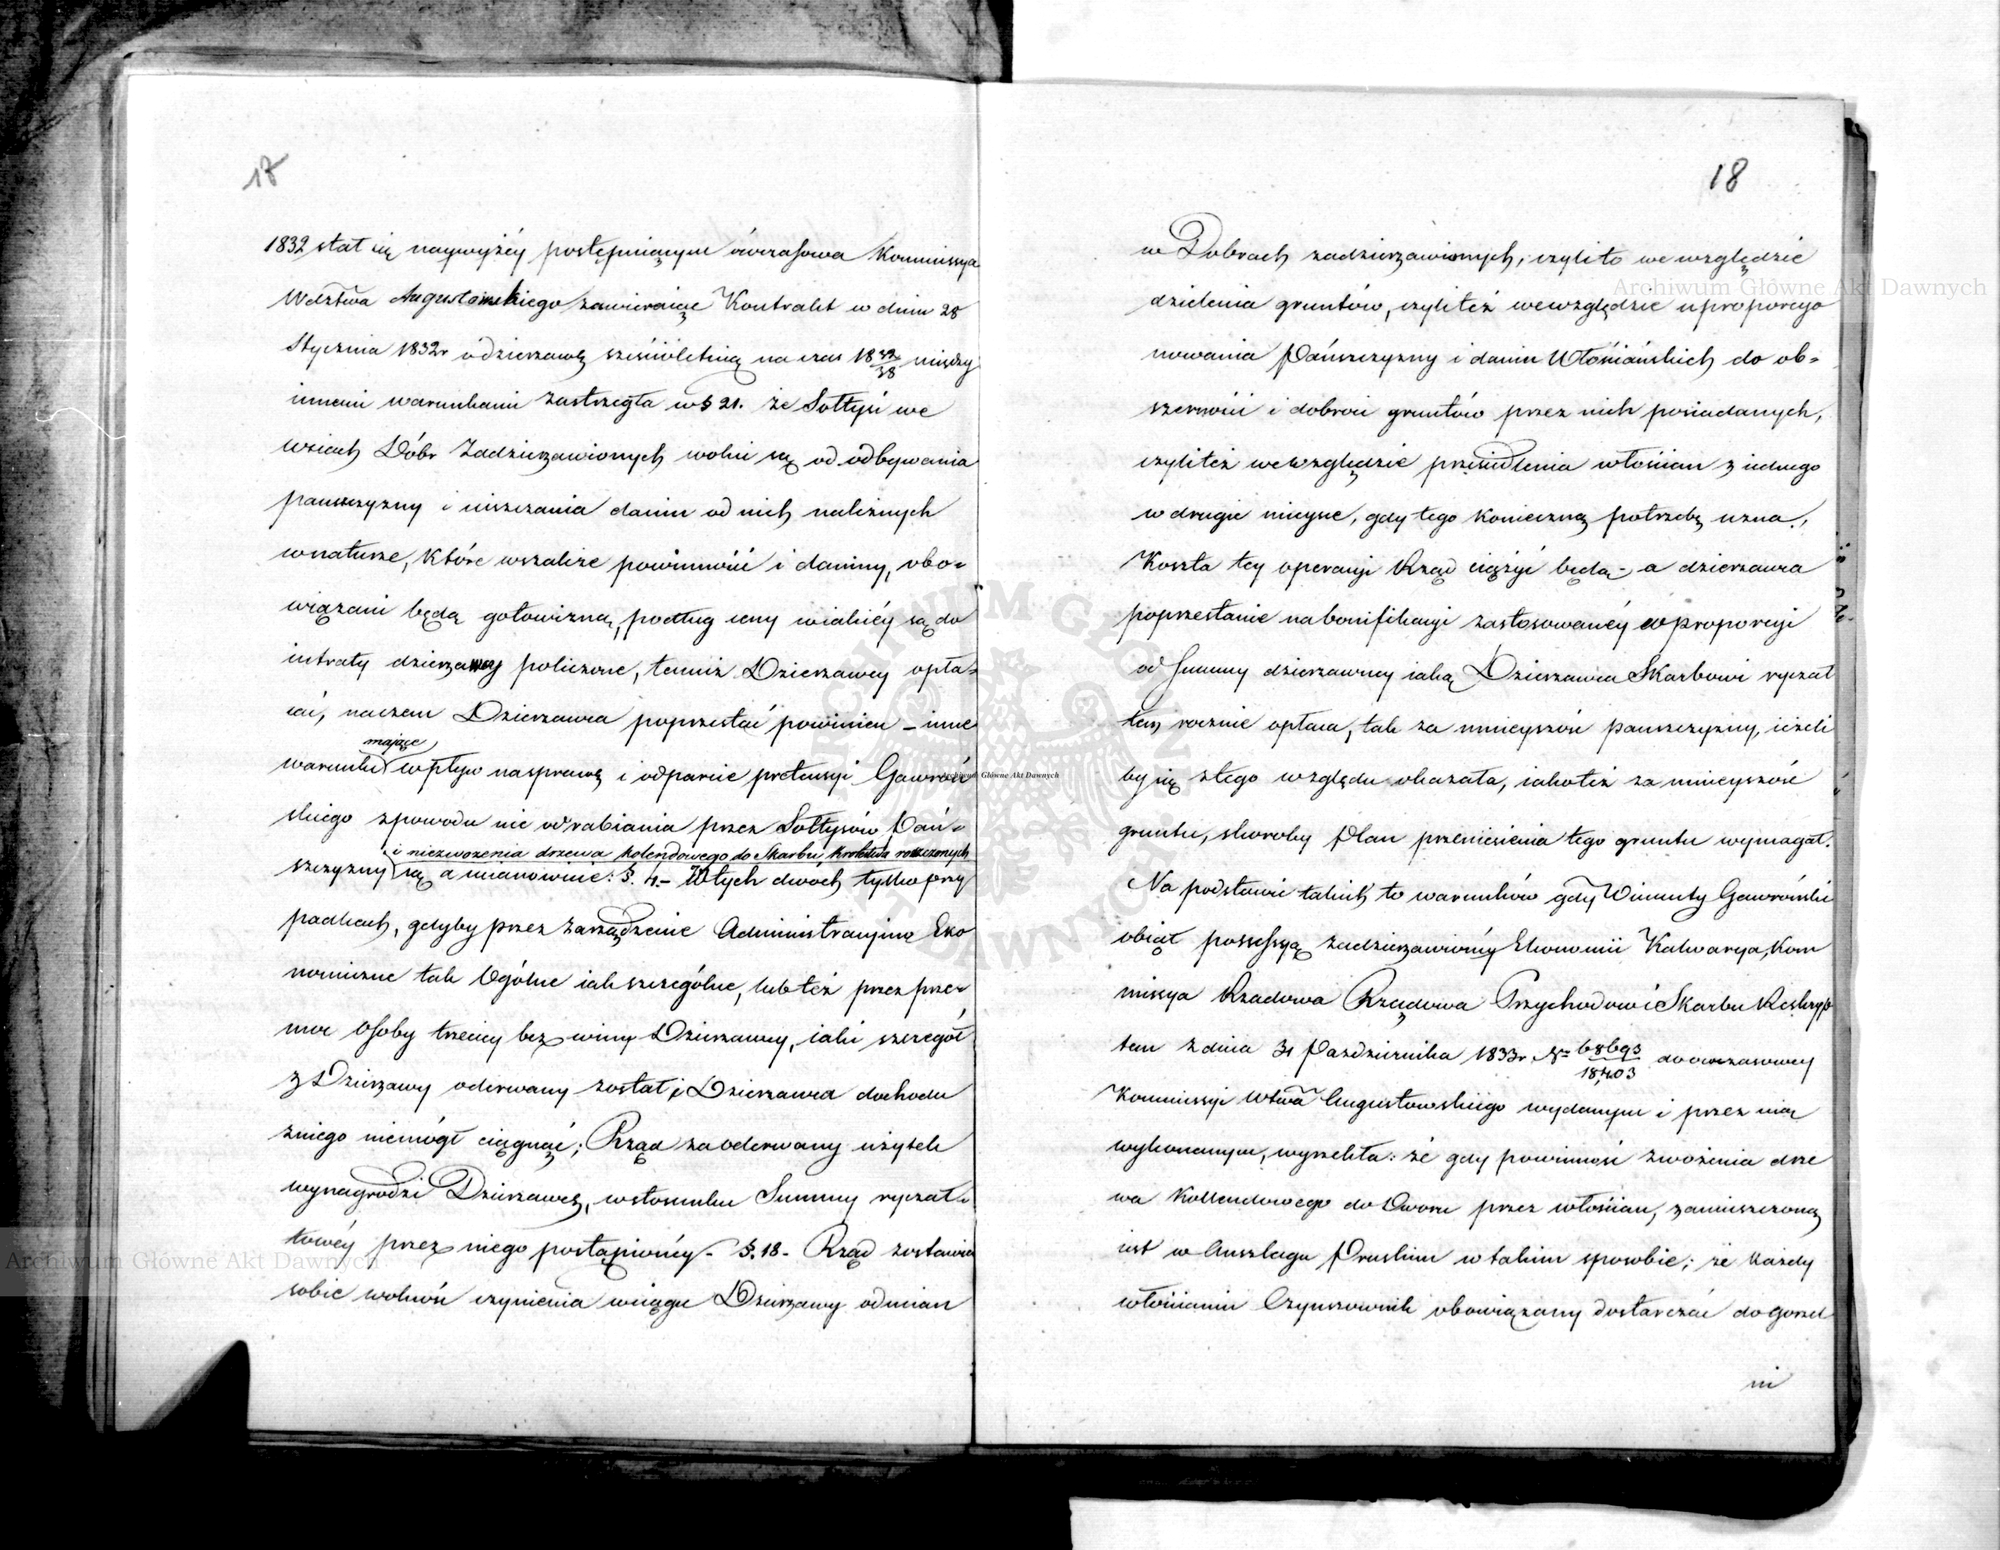 17
1832 stał się naywyżéy postępuiącym ówczasowa Kommissya
Wdztwa Augustowskiego zawieraiąc Kontrakt w dniu 28
Stycznia 1832r o dzierzawę sześcioletnią na czas 18 32/38 między
innemi warunkami zastrzegła w § 21. że Sołtysi we
wsiach Dóbr Zadzierzawionych wolni są od odbywania
panszczyzny i uiszczania danin od nich należnych
w naturze, które wszakże powinność i daniny, obo=
wiązani będą gotowizną, podług ceny wiakiéy są do
intraty dzierzawy policzone, temuż Dzierzawcy opła=
cać, na czem Dzierzawca poprzestać powinien – inne
mające
warunki wpływ na sprawę i odparcie pretensyi Gawroń
skiego z powodu nie odrabiania przez Sołtysów Pań=
i niezwożenia drzewa kolendowego do Skarbu Królestwa roszczonych
szczyzny są a mianowicie: §. 4.– W tych dwóch tylko przy
padkach, gdyby przez zarządzenie Administracyino Eko
nomiczne tak Ogólne iak szczególne, lub też przez prze=
moc Osoby trzeciey bez winy Dzierzawcy, iaki szczegół
z Dzierzawy oderwany został i Dzierzawca dochodu
z niego niemógł ciągnąć; Rząd za oderwany użytek
wynagrodzi Dzierzawcę, w stosunku Summy ryczał=
towéy przez niego postąpionéy – §. 18 – Rząd zostawia
sobie wolność czynienia w ciągu Dzierzawy odmian
18
w Dobrach zadzierzawionych, czyli to we względzie
dzielenia gruntów, czyli też we względzie uproporcyo
nowania Pańszczyzny i danin Włościańskich do ob=
szerności i dobroci gruntów przez nich posiadanych,
czyli też we względzie przesiedlenia włościan z iednego
w drugie mieysce, gdy tego konieczną potrzebę uzna.,
Koszta tey operacyi Rząd ciążyć będą – a dzierzawca
poprzestanie na bonifikacyi zastosowanéy w proporcyi
od Summy dzierzawney iaką Dzierzawca Skarbowi ryczał
tem rocznie opłaca, tak za mnieyszość panszczyzny, ieżeli
by się z tego względu okazała, iako też za mnieyszość
gruntu, skoroby Plan przeniesienia tego gruntu wymagał.
Na podstawie takich to warunków gdy Wincenty Gawroński
obiął possessyą zadzierzawionéy Ekonomii Kalwarya, Kom
missya Rządowa Rządowa Przychodów i Skarbu Reskryp
tem z dnia 31 Października 1833r № 68693/18,403 do ówczasowey
Kommissyi Wtwa Augustowskiego wydanym i przez nią
wykonanym, wyrzekła: że gdy powinność zwożenia drze
wa Kollendowego do Dworu przez włościan, zamieszczoną
iest w Anszlagu Pruskim w takim sposobie; że każdy
włościanin Czynszownik obowiązany dostarczać do gorzel
ni
Archiwum Główne Akt Dawnych
Archiwum Główne Akt Dawnych
Archiwum Główne Akt Dawnych
ARCHIWUM GŁÓWNE AKT DAWNYCH